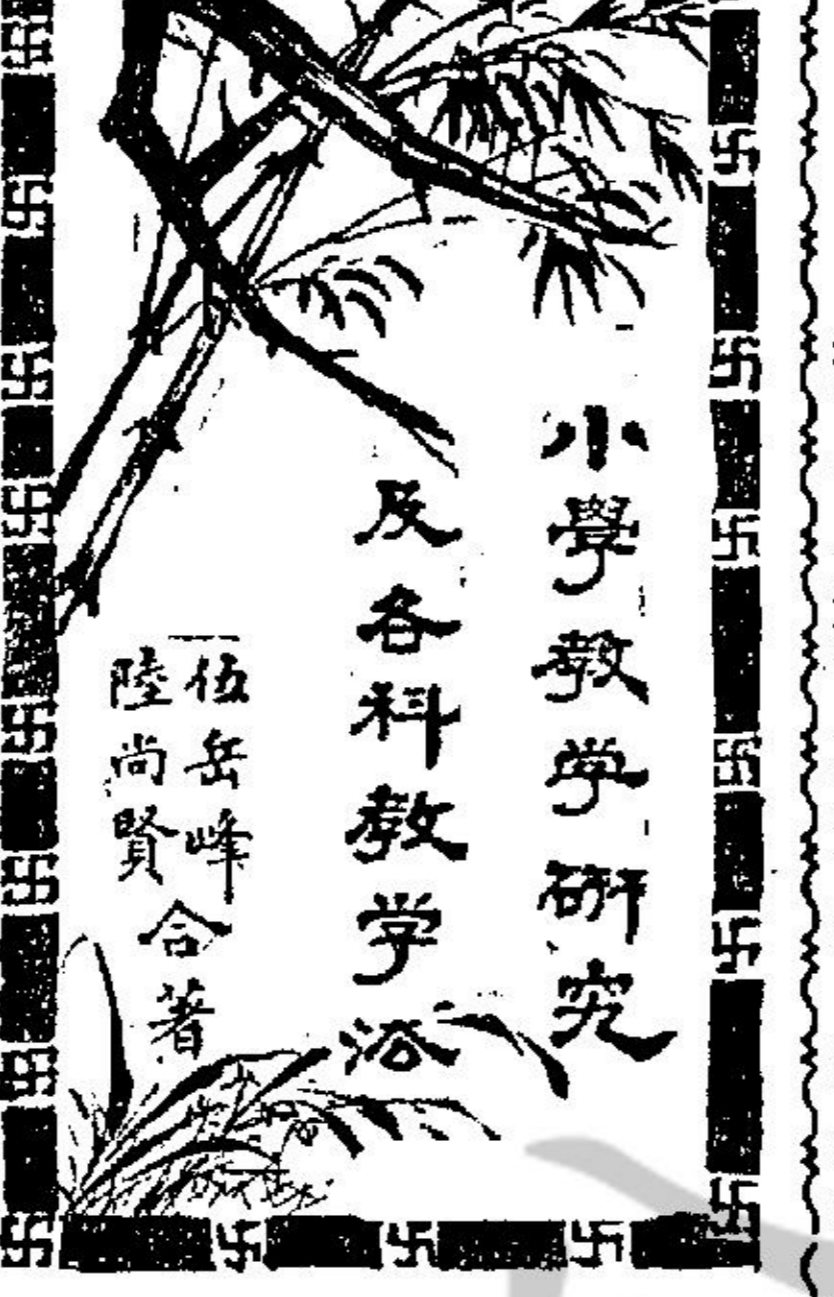 小學教学研究
及各科教学法
伍岳峰
陸尚賢
合著